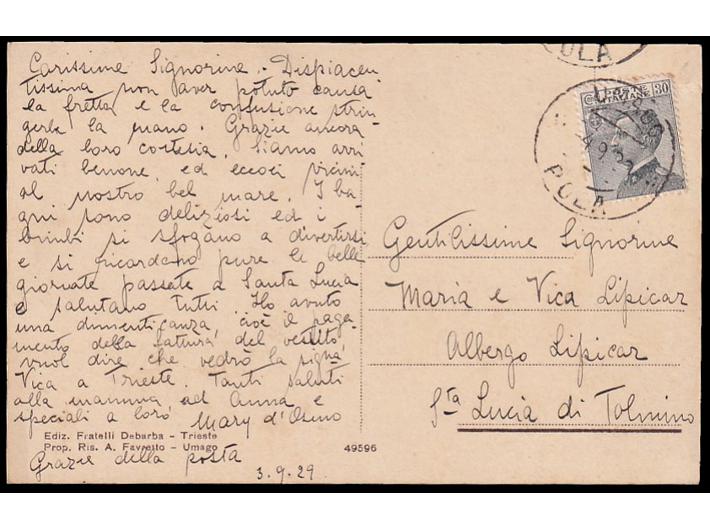 Carissime Signorine. Dispiacen
tissima non aver potuto causa
la fretta e la confusione strin
gerle la mano. Grazie ancora
della loro cortesia, siamo arri
vati benone, ed eccoci vicini
al nostro bel mare. I ba
gni sono deliziosi ed i
bimbi si sfogano a divertirsi
e si ricordano pure le belle
giornate passate a Santa Lucia
e salutano tutti. Ho avuto
una dimenticanza, cioè il paga
mento della fattura del vestito,
vuol dire che vedrò la signa
Vica a Trieste. Tanti saluti
alla mamma ed Anna e
speciali a loro Mary d'Osmo
Ediz. Fratelli Debarba - Trieste
Prop. Ris. A. Favretto - Umago
49596
Grazie della posta
3.9.29.
POLA
POSTE ITALIANE 30
UMAGO
POLA
Gentilissime Signorine
Maria e Vica Lipicar
Albergo Lipicar
Sta Lucia di Tolmino